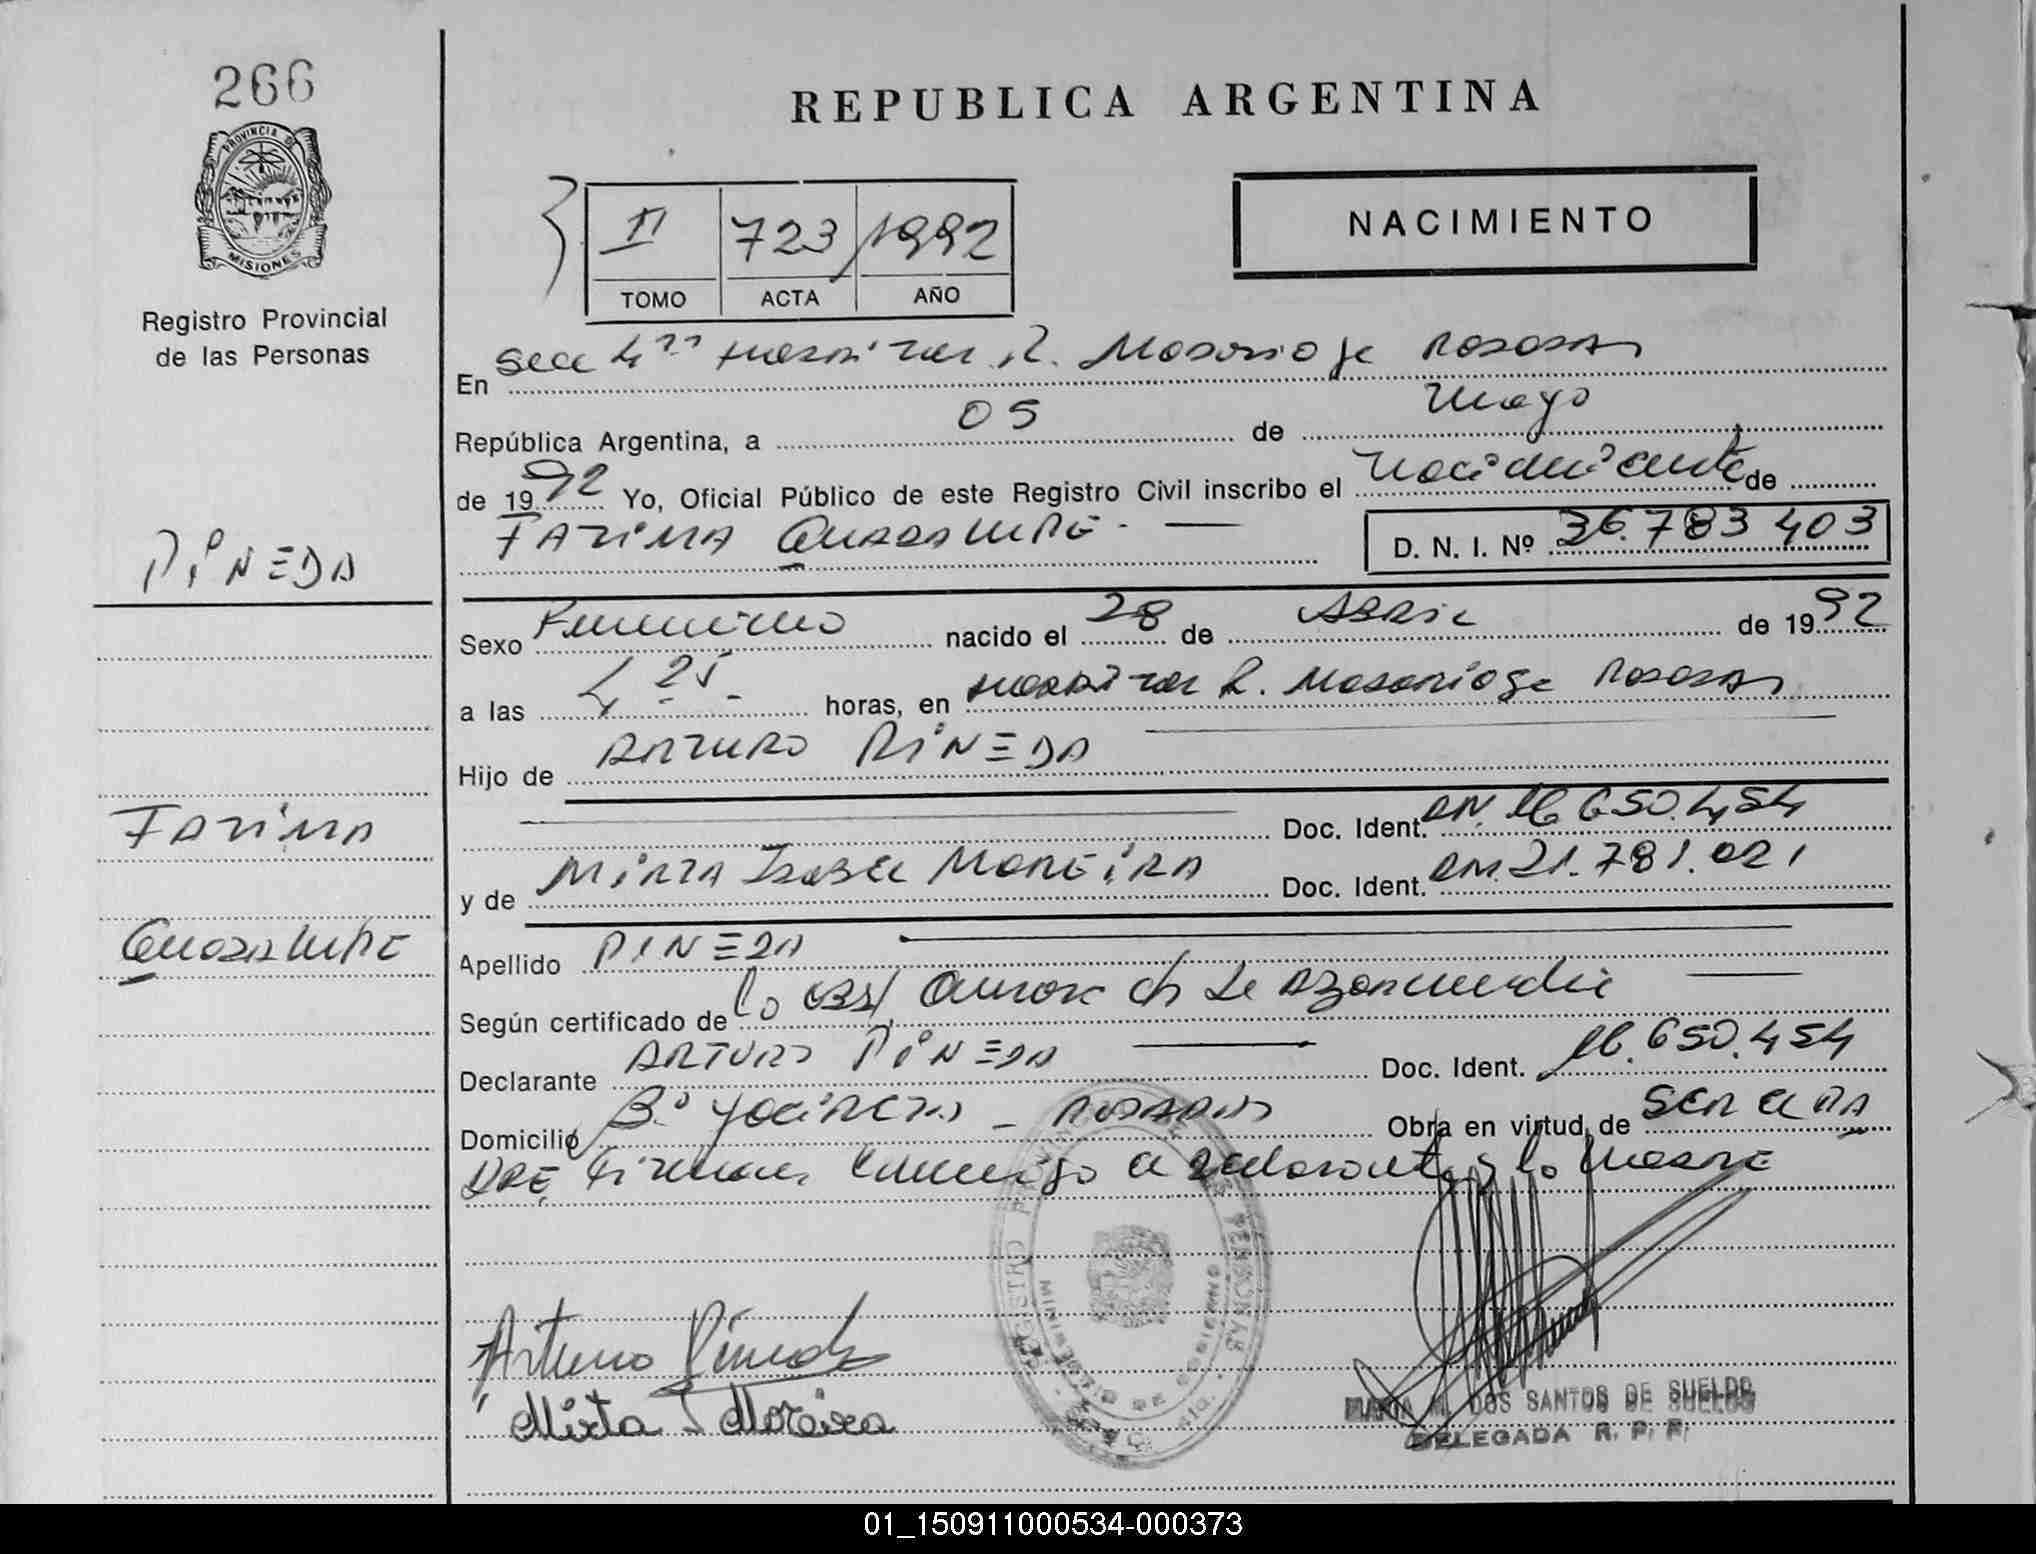 266
PROVINCIA DE
MISIONES
Registro Provincial
de las Personas
REPUBLICA ARGENTINA
NACIMIENTO
II 723 / 1992
TOMO ACTA AÑO
En Secc 4ta Hospital R. Madariaga Posadas
República Argentina, a 05 de Mayo
de 1992 Yo, Oficial Público de este Registro Civil inscribo el nacimiento de
FATIMA GUADALUPE
D. N. I. Nº 36.783 403
PINEDA
Sexo Femenino nacido el 28 de ABRIL de 1992
a las 4 25 horas, en Hospital R. Madariaga Posadas
Hijo de ARTURO PINEDA
Doc. Ident. DNI. 16.650.454
y de MIRTA ISABEL MOREIRA Doc. Ident. DNI 21.781.021
FATIMA
GUADALUPE
Apellido PINEDA
Según certificado de la Obst
Declarante ARTURO PINEDA Doc. Ident. 16.650.454
Domicilio Bº Yacireta - POSADAS Obra en virtud de SER EL PA
DRE Firman conmigo el declarante y la MADRE
Arturo Pineda
Mirta I Moreira
REGISTRO PERSONAS
MINISTERIO DE GOBIERNO
MARIA M. DOS SANTOS DE SUELDO
DELEGADA R. P. P.
01_150911000534-000373